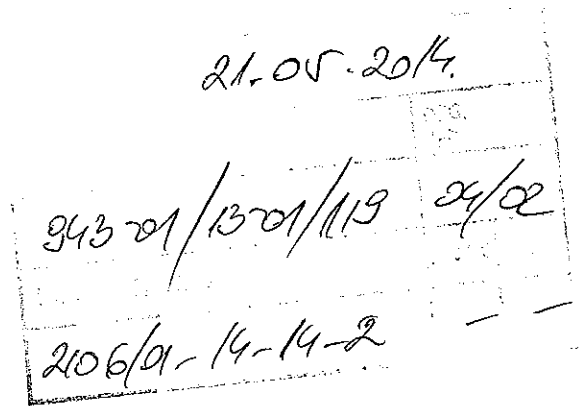 21.05.2014.
943-01/13-01/119 04/02
2106/01-14-14-2 — —